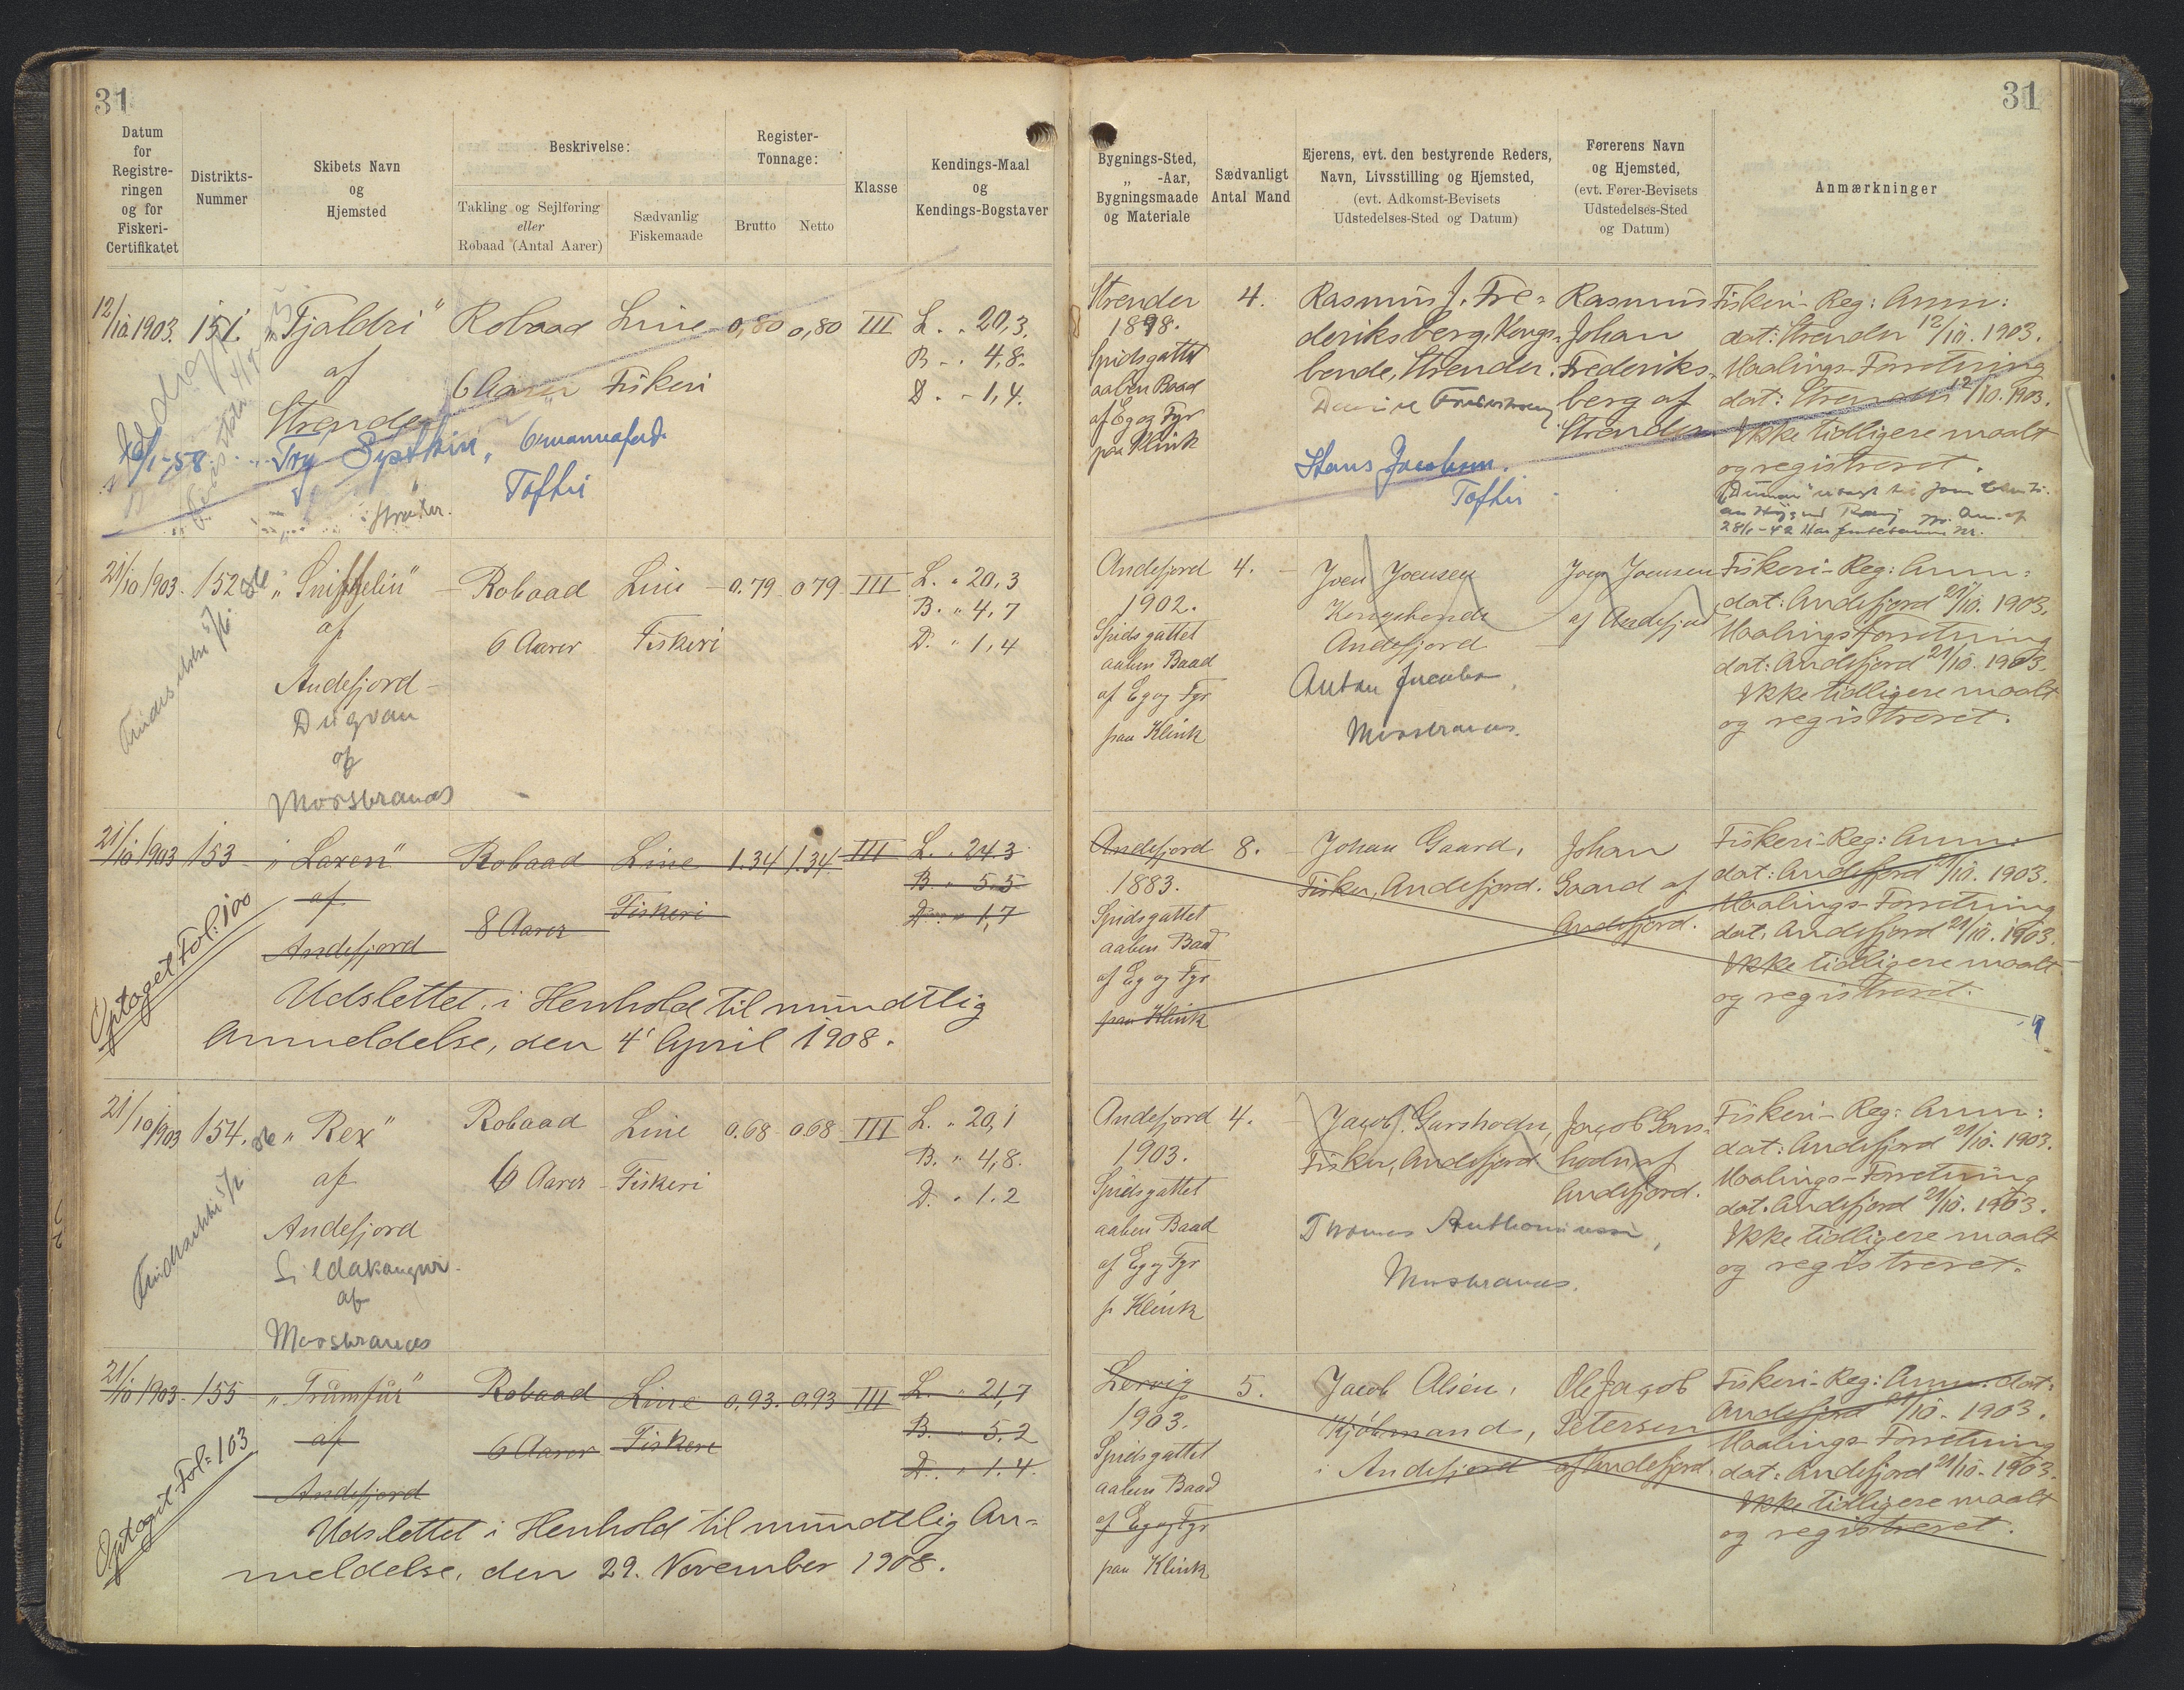 31
Datum
for
Registre-
ringen
og for
Fiskeri-
Certifikatet
Distrikts-
Nummer
Skibets Navn
og
Hjemsted
Beskrivelse:
Takling og Sejlføring
eller
Robaad (Antal Aarer)
Sædvanlig
Fiskemaade
Register-
Tonnage:
Brutto
Netto
Klasse
Kendings-Maal
og
Kendings-Bogstaver
12/10 1903. 151. "Tjaldri" Robaad Line 0,80 0,80 III L. " 20,3.
af 6 Aarer Fiskeri B " 4,8.
Strender D. " 1,4.
Sysskin, 6mannafar
Toftir
21/10 1903. 152 "Robaad Line 0.79 0 79 III L. " 20,3
af 6 Aarer Fiskeri B. " 4,7
D. " 1,4
Andefjord
Dugvan
af
Morskranes
21/10 1903 153 "Laxen" Robaad Line 1.34 1.34 III L. " 24.3
af 8 Aarer Fiskeri B. " 5.5
Andefjord D. " 1,7
Optaget Fol: 100
Udslettet i Henhold til mündtlig
Anmeldelse, den 4' April 1908.
21/10 1903 154. "Rex" Robaad Line 0.68 0.68 III L. " 20,1
af 6 Aarer Fiskeri B. " 4,8.
Andefjord D. " 1.2
af
Morskranes
21/10 1903 155 "Trümfür" Robaad Line 0.93. 0.93 III L. " 21,7
af 6 Aarer Fiskeri B. " 5.2
Andefjord D. " 1.4.
Optaget Fol: 103
Udslettet i Henhold til mündtlig An=
meldelse, den 29. November 1908.
31
Bygnings-Sted,
„ -Aar,
Bygningsmaade
og Materiale
Sædvanligt
Antal Mand
Ejerens, evt. den bestyrende Reders,
Navn, Livsstilling og Hjemsted,
(evt. Adkomst-Bevisets
Udstedelses-Sted og Datum)
Førerens Navn
og Hjemsted,
(evt. Fører-Bevisets
Udstedelses-Sted
og Datum)
Anmærkninger
Strender
1898.
Spidsgattet
aaben Baad
af Eg og Fyr
paa Klink
4.
Rasmüs J. Fre=
deriksberg, Kongs=
bonde, Strender.
Hans Jacobsen.
Toftir
Rasmüs
Johan
Frederiks=
berg af
Strender
Fiskeri-Reg: Anm:
dat: Strender 12/10. 1903.
Maalings-Forretning
dat: Strender 12/10. 1903.
Ikke tidligere maalt
og registreret.
Andefjord
1902.
Spidsgattet
aaben Baad
af Eg og Fyr
paa Klink
4.
Joen Joensen
Kongsbonde
Andefjord
Anton Jacobs
Morskranes.
Joen Joensen
af Andefjord
Fiskeri-Reg: Anm:
dat: Andefjord 21/10. 1903.
Maalingsforretning
dat: Andefjord 21/10. 1903.
Ikke tidligere maalt
og registreret.
Andefjord
1883.
Spidsgattet
aaben Baad
af Eg og Fyr
paa Klink
8.
Johan Gaard,
Fisker, Andefjord.
Johan
Gaard af
Andefjord.
Fiskeri-Reg: Anm:
dat: Andefjord 21/10. 1903.
Maalings-Forretning
dat. Andefjord 21/10. 1903.
Ikke tidligere maalt
og registreret.
Andefjord
1903.
Spidsgattet
aaben Baad
af Eg og Fyr
p. Klink
4.
Jacob Garshodn,
Fisker, Andefjord
Thomas
Morskranes.
Jacob Gars=
hodn af
Andefjord.
Fiskeri-Reg: Anm:
dat: Andefjord 21/10. 1903.
Maalings-Forretning
dat. Andefjord 21/10. 1903.
Ikke tidligere maalt
og registreret.
Lervig
1903.
Spidsgattet
aaben Baad
af Eg og Fyr
paa Klink
5.
Jacob Olsen,
Kjøbmand,
i Andefjord
Ole Jacob
Petersen
af Andefjord.
Fiskeri-Reg: Anm. dat:
Andefjord 21/10. 1903.
Maalings-Forretning
dat: Andefjord 21/10. 1903.
Ikke tidligere maalt
og registreret.